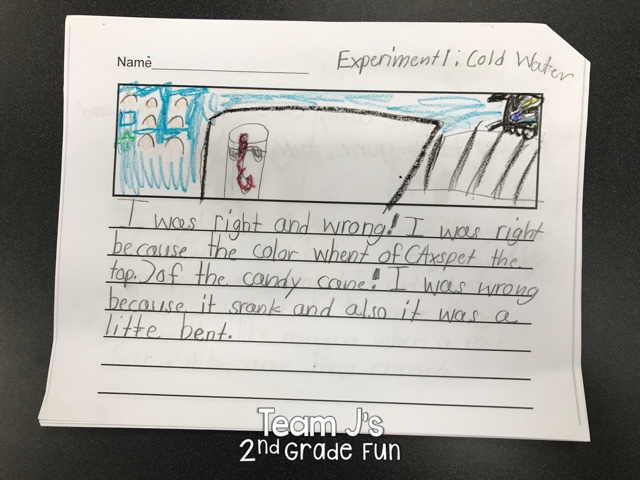 Name
Experiment 1: Cold Water
I was right and wrong! I was right
because the color whent of (Axspet the
top.) of the candy cane! I was wrong
because it srank and also it was a
little bent.
Team J's
2nd Grade Fun